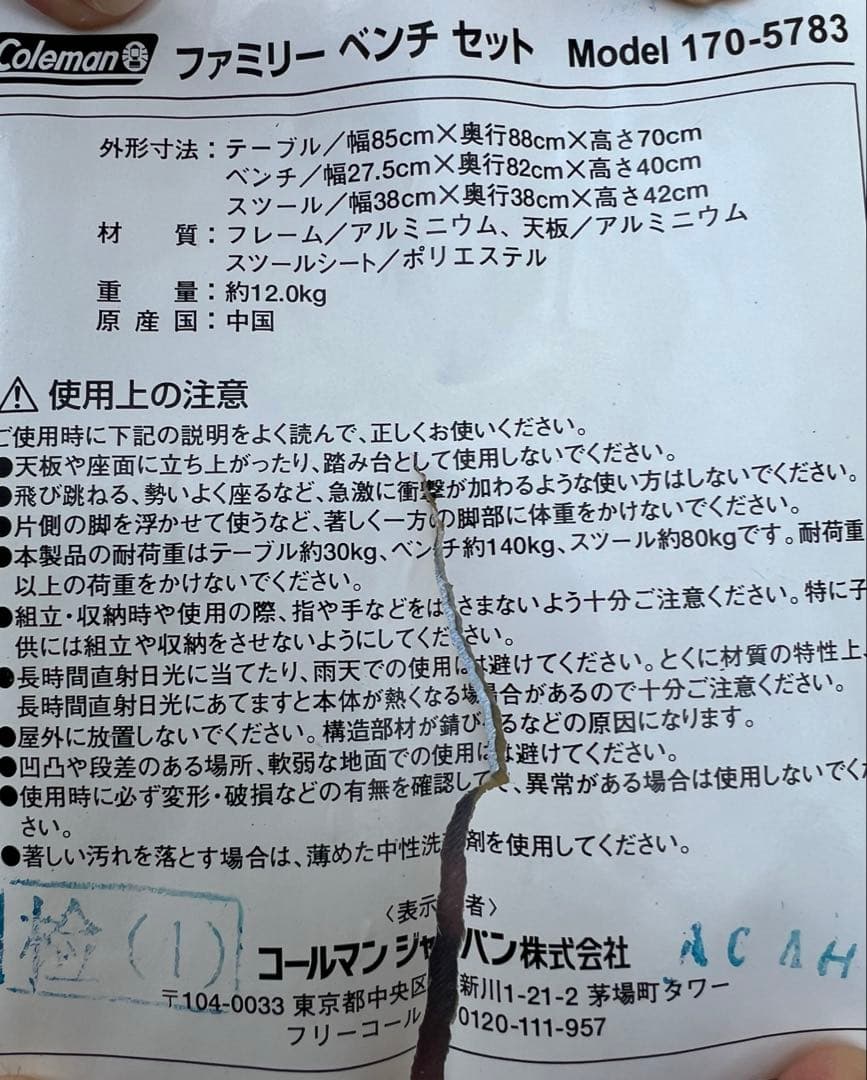 Coleman ファミリー ベンチ セット Model 170-5783
外形寸法：テーブル／幅85cm×奥行88cm×高さ70cm
ベンチ／幅27.5cm×奥行82cm×高さ40cm
スツール／幅38cm×奥行38cm×高さ42cm
材 質：フレーム／アルミニウム、天板／アルミニウム
スツールシート／ポリエステル
重 量：約12.0kg
原 産 国：中国
⚠使用上の注意
ご使用時に下記の説明をよく読んで、正しくお使いください。
●天板や座面に立ち上がったり、踏み台として使用しないでください。
●飛び跳ねる、勢いよく座るなど、急激に衝撃が加わるような使い方はしないでください。
●片側の脚を浮かせて使うなど、著しく一方の脚部に体重をかけないでください。
●本製品の耐荷重はテーブル約30kg、ベンチ約140kg、スツール約80kgです。耐荷重
以上の荷重をかけないでください。
●組立・収納時や使用の際、指や手などをはさまないよう十分ご注意ください。特に子
供には組立や収納をさせないようにしてください。
●長時間直射日光に当てたり、雨天での使用は避けてください。とくに材質の特性上、
長時間直射日光にあてますと本体が熱くなる場合があるので十分ご注意ください。
●屋外に放置しないでください。構造部材が錆びるなどの原因になります。
●凹凸や段差のある場所、軟弱な地面での使用は避けてください。
●使用時に必ず変形・破損などの有無を確認して、異常がある場合は使用しないでくだ
さい。
●著しい汚れを落とす場合は、薄めた中性洗剤を使用してください。
〈表示者〉
コールマン ジャパン株式会社
〒104-0033 東京都中央区新川1-21-2 茅場町タワー
フリーコール 0120-111-957
検(1)
ACAH